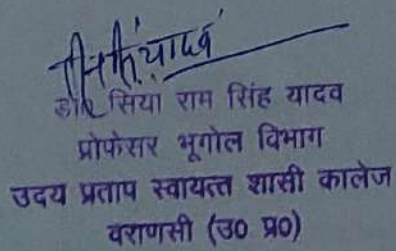 डॉ० सिया राम सिंह यादव
प्रोफेसर भूगोल विभाग
उदय प्रताप स्वायत्त शासी कालेज
वराणसी (उ० प्र०)